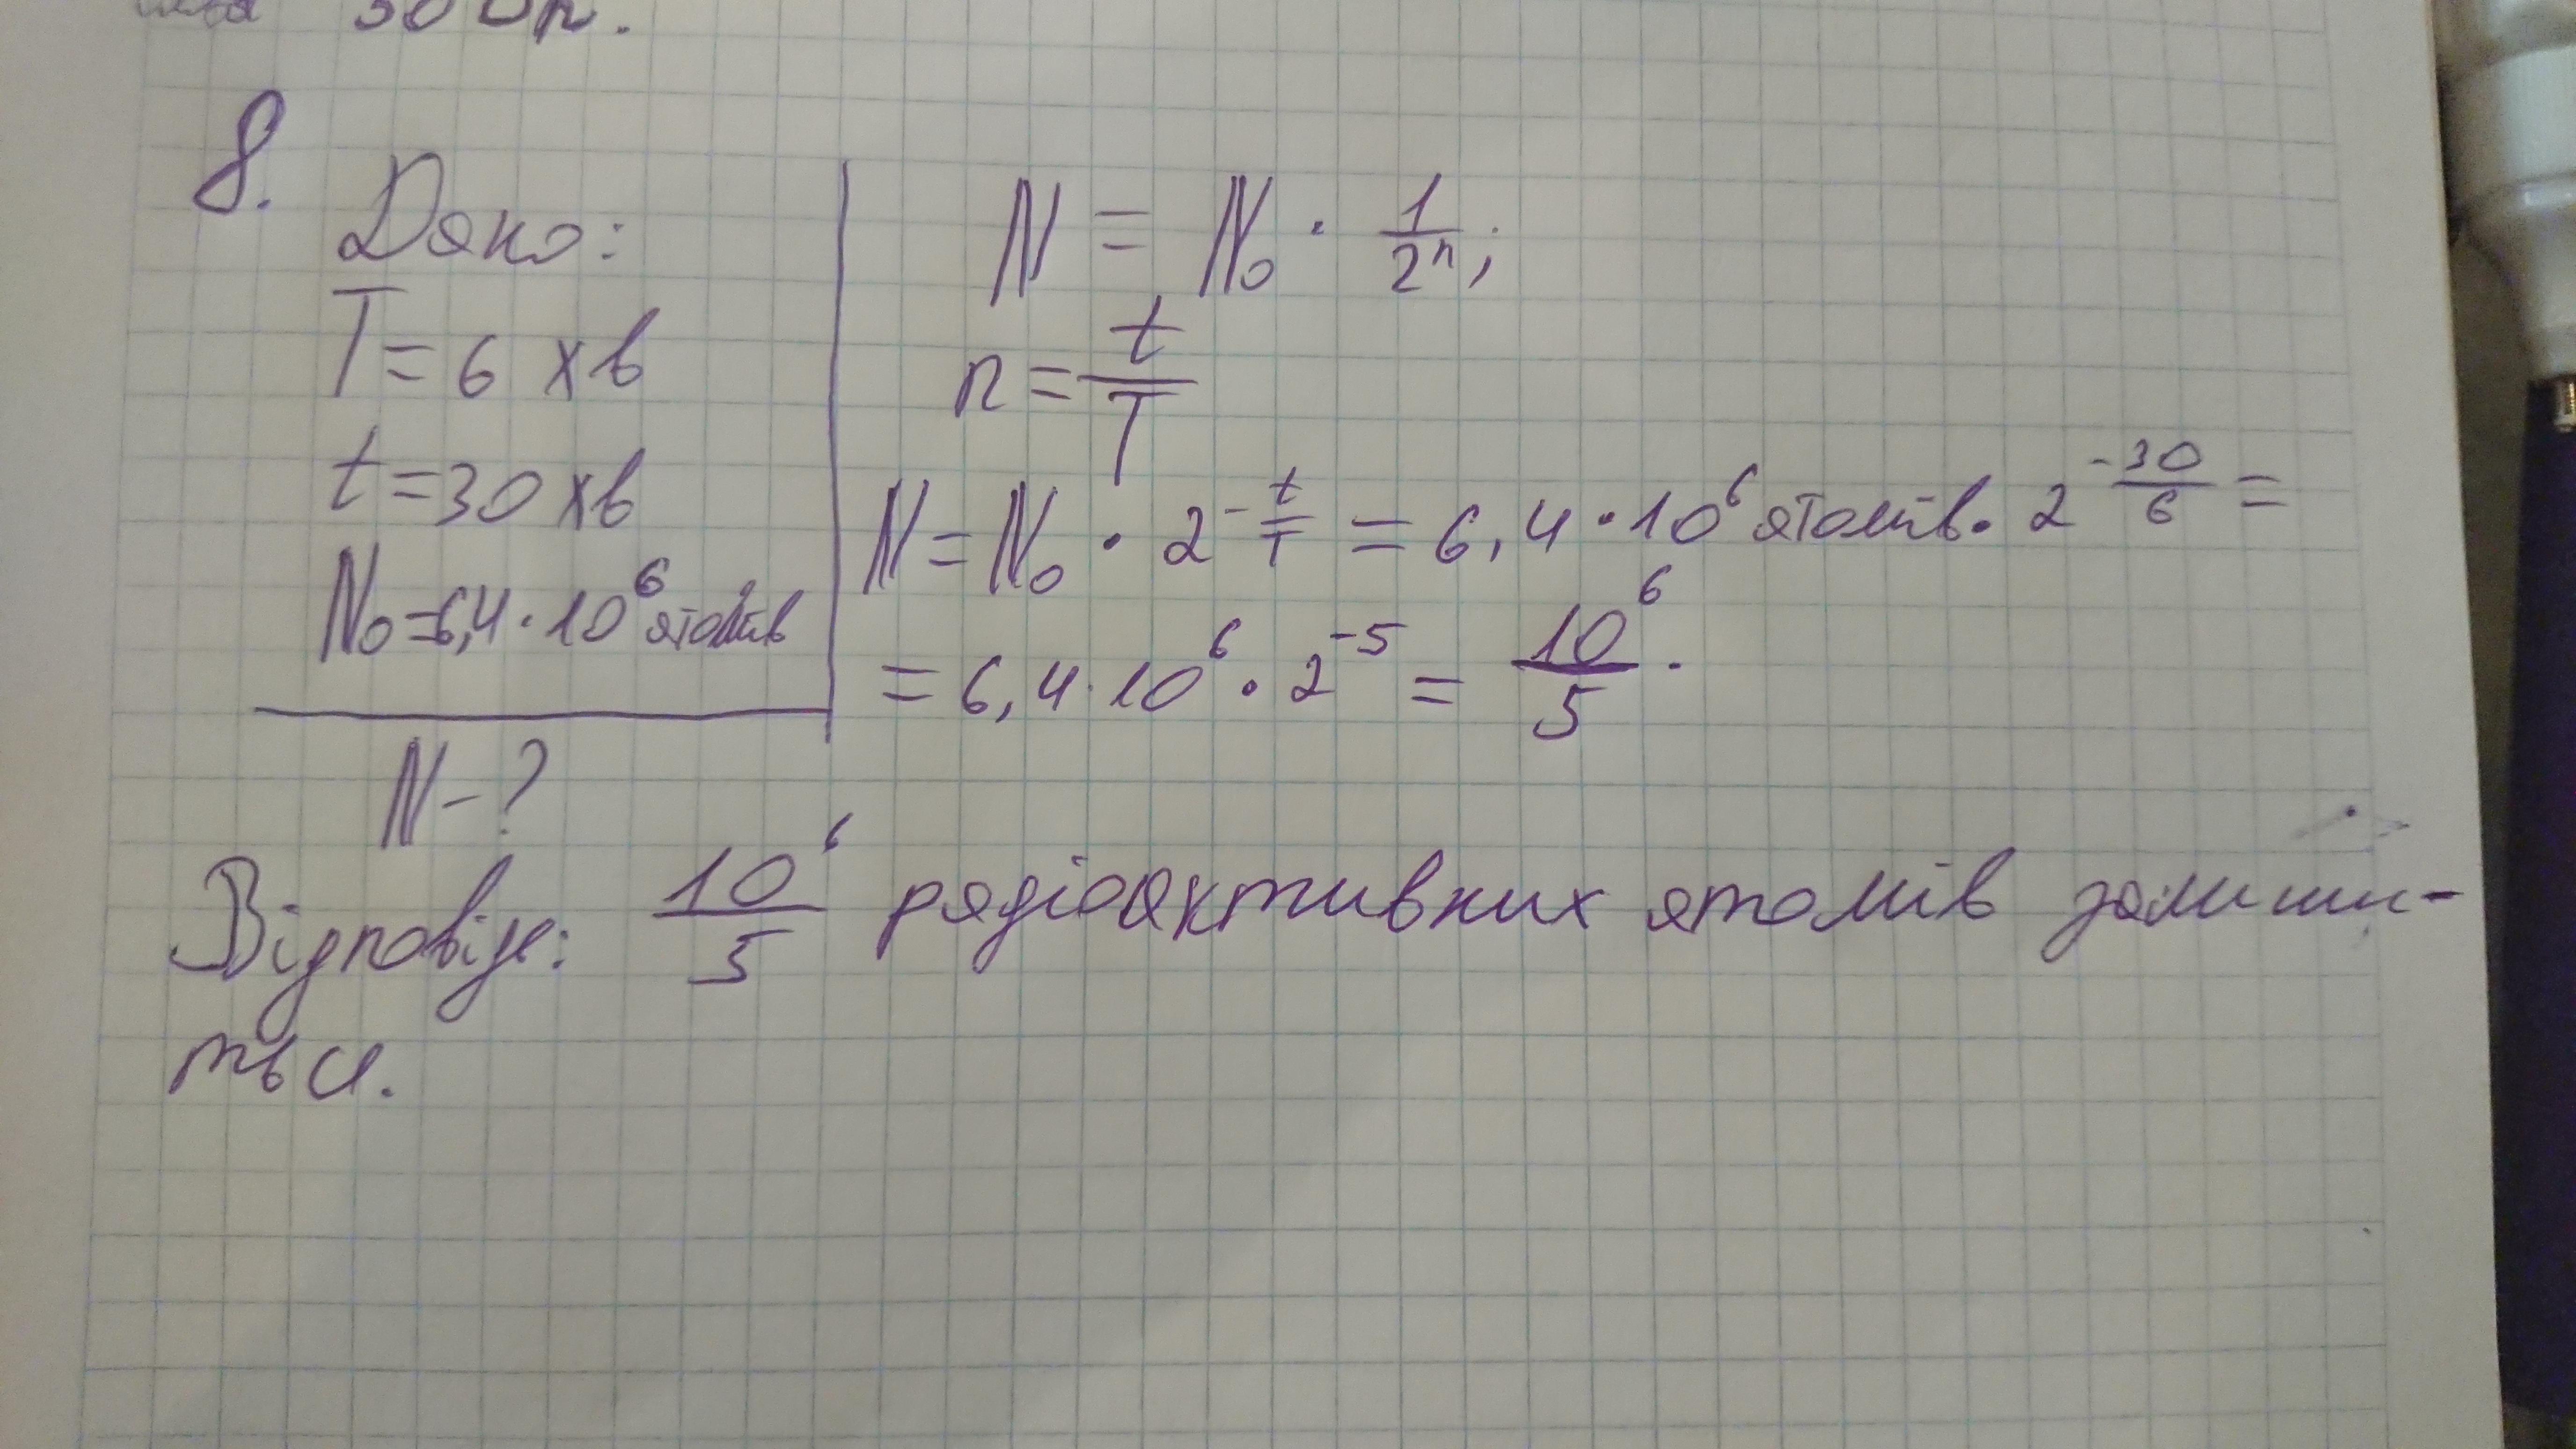 30 Бк.
8.
Дано:
T = 6 хв
t = 30 хв
N₀ = 6,4 · 10⁶ атомів
N - ?
N = N₀ · 1/2ⁿ;
n = t/T
N = N₀ · 2^(-t/T) = 6,4 · 10⁶ атомів · 2^(-30/6) =
= 6,4 · 10⁶ · 2⁻⁵ = 10⁶/5 .
Відповідь: 10⁶/5 радіоактивних атомів залиши-
ться.